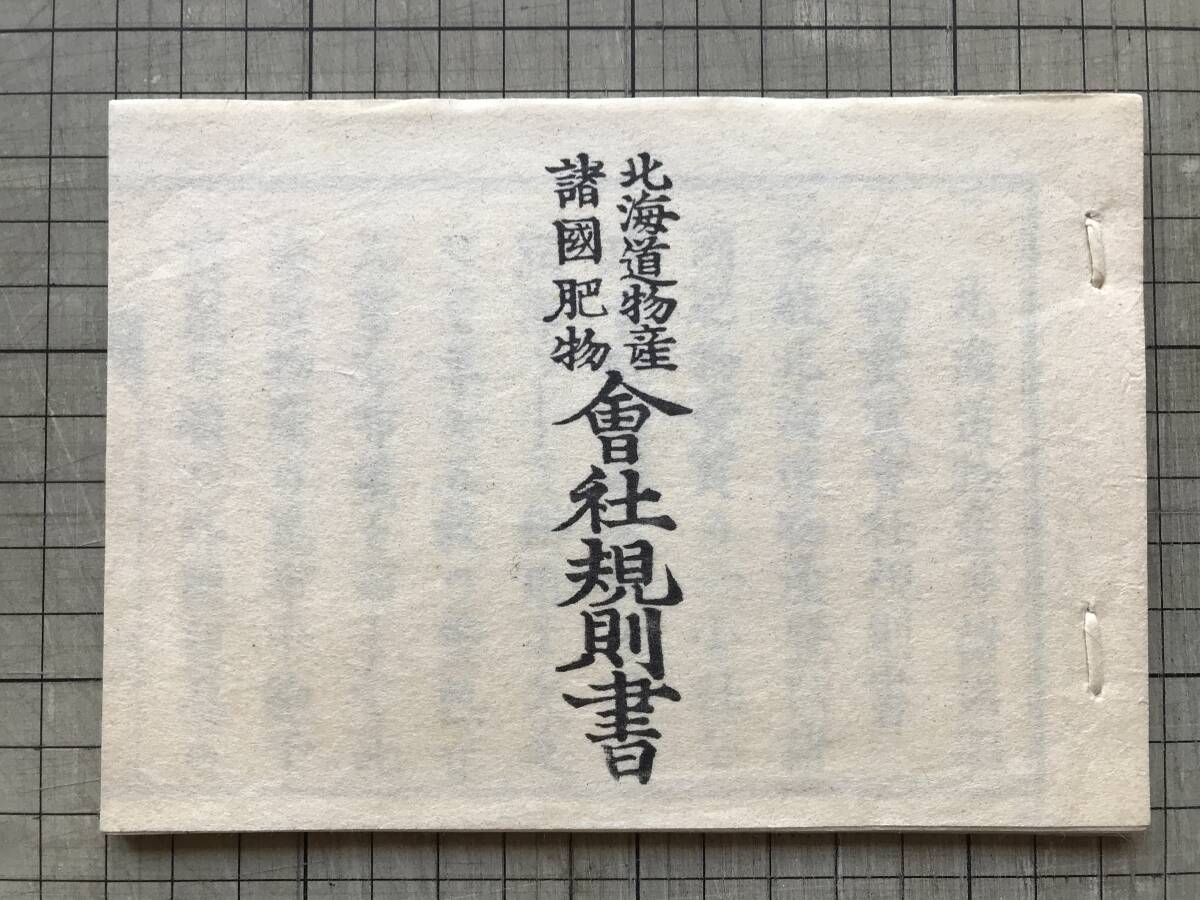 北海道物産
諸國肥物
會社規則書